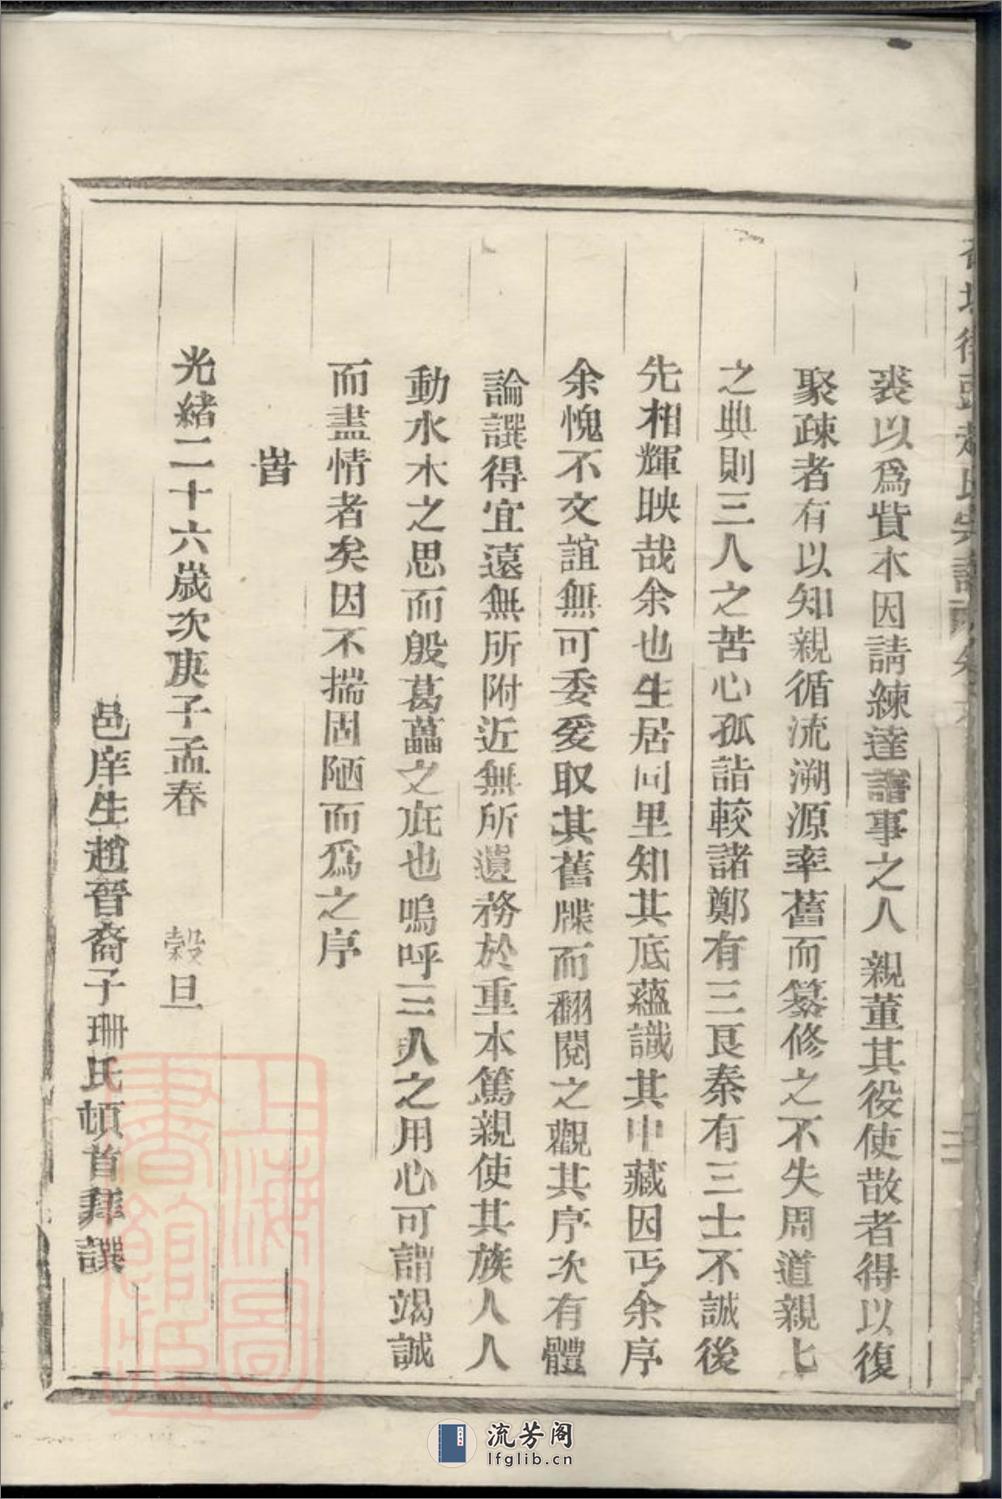 裘以爲貲本因請練達譜事之人親董其役使散者得以復
聚疎者有以知親循流溯源率舊而纂修之不失周道親七
之典則三人之苦心孤詣較諸鄭有三良秦有三士不誠後
先相輝映哉余也生居同里知其底蘊識其中藏因丐余序
余愧不文誼無可委爰取其舊牒而翻閱之觀其序次有體
論譔得宜遠無所附近無所遺務於重本篤親使其族人人
動水木之思而殷葛藟之庇也嗚呼三人之用心可謂竭誠
而盡情者矣因不揣固陋而爲之序
旹
光緒二十六歲次庚子孟春 穀旦
邑庠生趙晉裔子珊氏頓首拜譔
上海圖書館藏
流芳阁
lfglib.cn